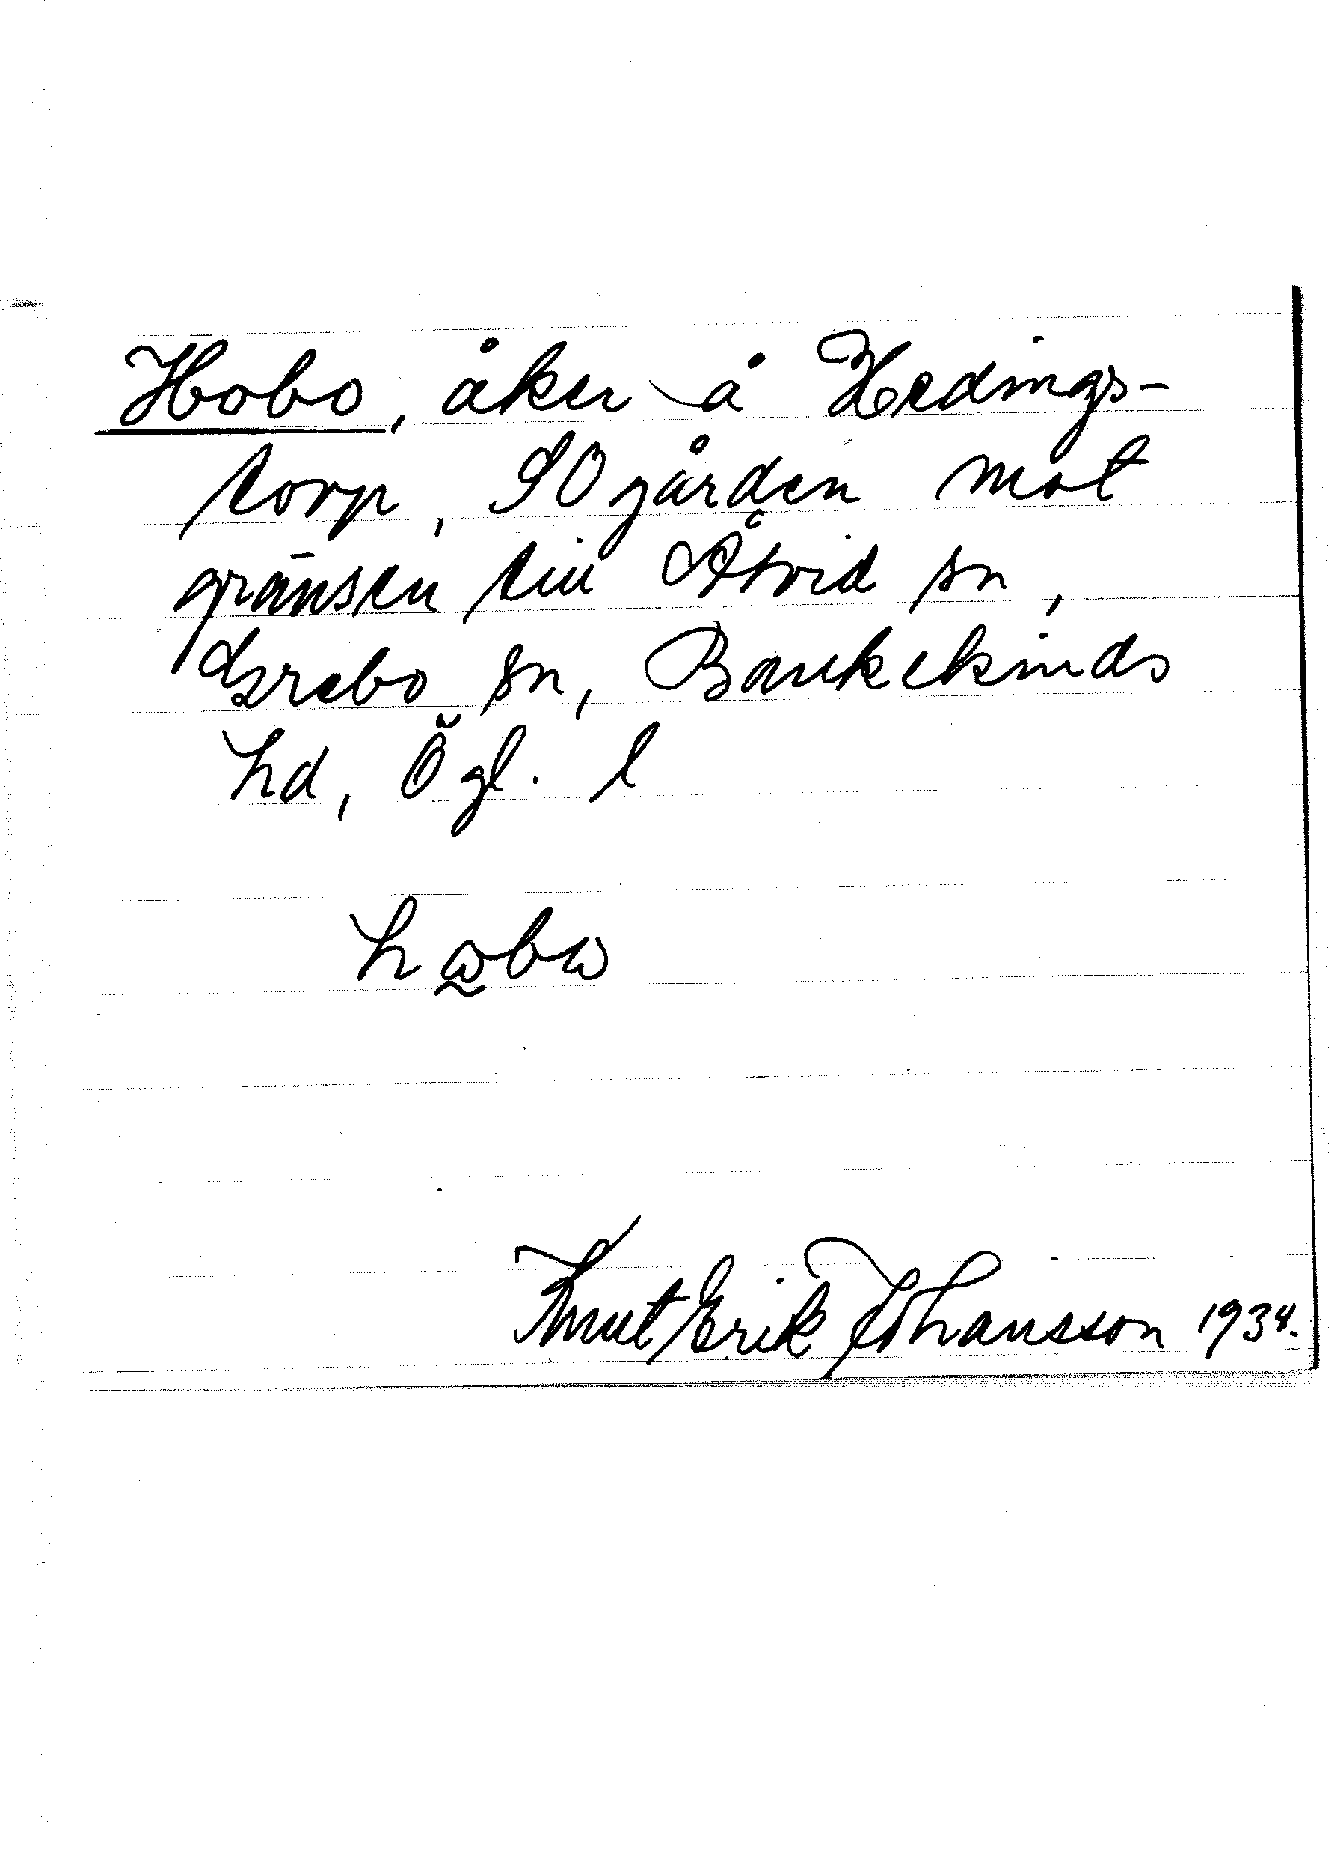 Hobo, åker å Hedings-
torp, SO gården mot
gränsen till Åtvid sn,
Grebo sn, Bankekinds
hd, Ögl. l
hω̰bω
Knut Erik Johansson 1934.